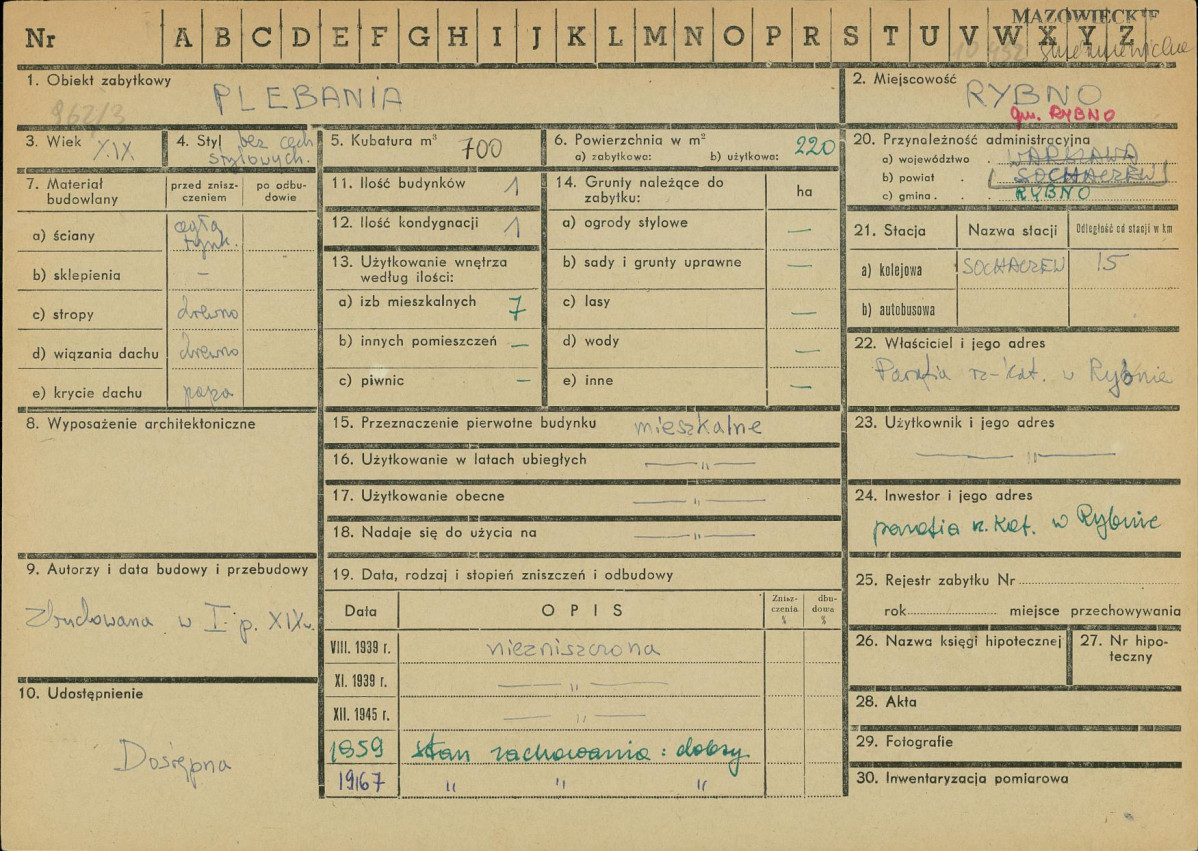 MAZOWIECKIE
Nr A B C D E F G H I J K L M N O P R S T U V W X Y Z
1. Obiekt zabytkowy
PLEBANIA
962/3
2. Miejscowość
RYBNO
gm. RYBNO
3. Wiek XIX
4. Styl bez cech
stylowych.
5. Kubatura m³ 700
6. Powierzchnia w m²
a) zabytkowa: b) użytkowa: 220
20. Przynależność administracyjna
a) województwo . WARSZAWA
b) powiat . SOCHACZEW
c) gmina . . RYBNO
7. Materiał budowlany
przed zniszczeniem
po odbudowie
a) ściany cegła
tynk.
b) sklepienia –
c) stropy drewno
d) wiązania dachu drewno
e) krycie dachu papa
11. Ilość budynków 1
12. Ilość kondygnacji 1
13. Użytkowanie wnętrza
według ilości:
a) izb mieszkalnych 7
b) innych pomieszczeń –
c) piwnic –
14. Grunty należące do
zabytku:
ha
a) ogrody stylowe –
b) sady i grunty uprawne –
c) lasy –
d) wody –
e) inne –
21. Stacja Nazwa stacji Odległość od stacji w km
a) kolejowa SOCHACZEW 15
b) autobusowa
22. Właściciel i jego adres
Parafia rz-kat. w Rybnie
8. Wyposażenie architektoniczne
15. Przeznaczenie pierwotne budynku mieszkalne
16. Użytkowanie w latach ubiegłych — " —
17. Użytkowanie obecne — " —
18. Nadaje się do użycia na — " —
23. Użytkownik i jego adres
— " —
24. Inwestor i jego adres
parafia rz. kat. w Rybnie
9. Autorzy i data budowy i przebudowy
Zbudowana w I. p. XIX w.
10. Udostępnienie
Dostępna
19. Data, rodzaj i stopień zniszczeń i odbudowy
Data OPIS Zniszczenia % dbudowa %
VIII. 1939 r. niezniszczona
XI. 1939 r. — " —
XII. 1945 r. — " —
1959 stan zachowania: dobry
1967 " " "
25. Rejestr zabytku Nr
rok miejsce przechowywania
26. Nazwa księgi hipotecznej
27. Nr hipoteczny
28. Akta
29. Fotografie
30. Inwentaryzacja pomiarowa